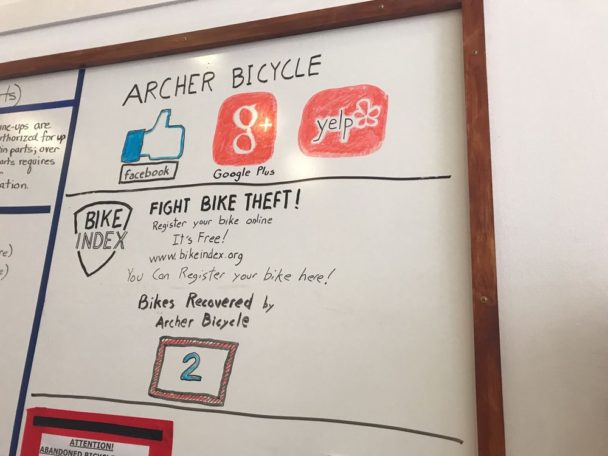 ARCHER BICYCLE
facebook
g+
Google Plus
yelp
ts)
une-ups are
uthorized for up
in parts; over
arts requires
ation.
re)
e)
BIKE
INDEX
FIGHT BIKE THEFT!
Register your bike online
It's Free!
www.bikeindex.org
You Can Register your bike here!
Bikes Recovered by
Archer Bicycle
2
ATTENTION!
ABANDONED BICYCL